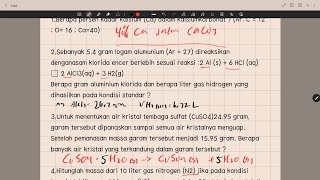 1.Berapa persen kadar kalsium (Ca) dalam kalsiumkarbonat ? (Ar : C = 12
: O= 16 : Ca=40) 40% Ca dalam CaCO3
2.Sebanyak 5.4 gram logam alumunium (Ar = 27) direaksikan
denganasam klorida encer berlebih sesuai reaksi :2 Al (s) + 6 HCl (aq)
2 AlCl3(aq) + 3 H2(g)
Berapa gram alumunium klorida dan berapa liter gas hidrogen yang
dihasilkan pada kondisi standar ?
3. Untuk menentukan air kristal tembaga sulfat (CuSO4)24.95 gram,
garam tersebut dipanaskan sampai semua air kristalnya menguap.
Setelah pemanasan massa garam tersebut menjadi 15.95 gram. Berapa
banyak air kristal yang terkandung dalam garam tersebut?
CuSO4 . 5 H2O (s) -> CuSO4 (s) + 5 H2O (g)
4.Hitunglah massa dari 10 liter gas nitrogen (N2) jika pada kondisi